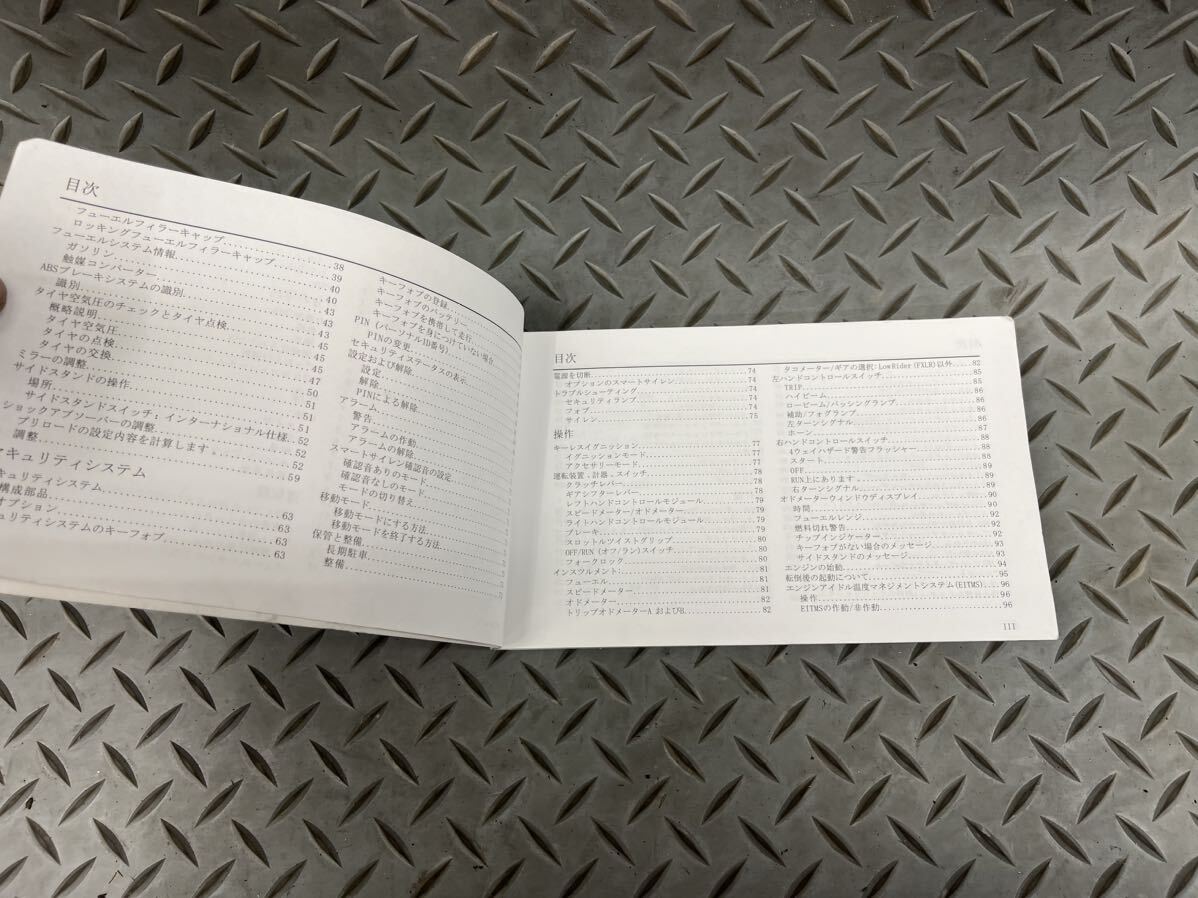 目次
フューエルフィラーキャップ
ロッキングフューエルフィラーキャップ 38
フューエルシステム情報 39
ガソリン 40
触媒コンバーター 40
ABSブレーキシステムの識別 43
識別 43
タイヤ空気圧のチェックとタイヤ点検 43
概略説明 45
タイヤ空気圧 45
タイヤの点検 45
タイヤの交換 47
ミラーの調整 50
サイドスタンドの操作 51
場所 51
サイドスタンドスイッチ：インターナショナル仕様 52
ショックアブソーバーの調整 52
プリロードの設定内容を計算します。 52
調整 59
キュリティシステム
キュリティシステム 63
構成部品 63
オプション 63
ュリティシステムのキーフォブ
キーフォブの登録
キーフォブのバッテリー
キーフォブを携帯して走行
キーフォブを身につけていない場合
PIN（パーソナルID番号）
PINの変更
セキュリティステータスの表示
設定および解除
設定
解除
PINによる解除
アラーム
警告
アラームの作動
アラームの解除
スマートサイレン確認音の設定
確認音ありのモード
確認音なしのモード
モードの切り替え
移動モード
移動モードにする方法
移動モードを終了する方法
保管と整備
長期駐車
整備
目次
電源を切断 74
オプションのスマートサイレン 74
トラブルシューティング 74
セキュリティランプ 74
フォブ 74
サイレン 75
操作
キーレスイグニッション 77
イグニッションモード 77
アクセサリーモード 77
運転装置、計器、スイッチ 78
クラッチレバー 78
ギアシフターレバー 78
レフトハンドコントロールモジュール 79
スピードメーター/オドメーター 79
ライトハンドコントロールモジュール 79
ブレーキ 79
スロットルツイストグリップ 80
OFF/RUN（オフ/ラン）スイッチ 80
フォークロック 80
インスツルメント 81
フューエル 81
スピードメーター 81
オドメーター 82
トリップオドメーターA およびB 82
タコメーター/ギアの選択：Low Rider (FXLR)以外 82
左ハンドコントロールスイッチ 85
TRIP 85
ハイビーム 86
ロービーム/パッシングランプ 86
補助/フォグランプ 86
左ターンシグナル 86
ホーン 87
右ハンドコントロールスイッチ 88
4ウェイハザード警告フラッシャー 88
スタート 88
OFF 89
RUN上にあります。 89
右ターンシグナル 89
オドメーターウィンドウディスプレイ 90
時間 90
フューエルレンジ 92
燃料切れ警告 92
チップインジケーター 92
キーフォブがない場合のメッセージ 93
サイドスタンドのメッセージ 93
エンジンの始動 94
転倒後の起動について 95
エンジンアイドル温度マネジメントシステム(EITMS) 96
操作 96
EITMSの作動/非作動 96
III